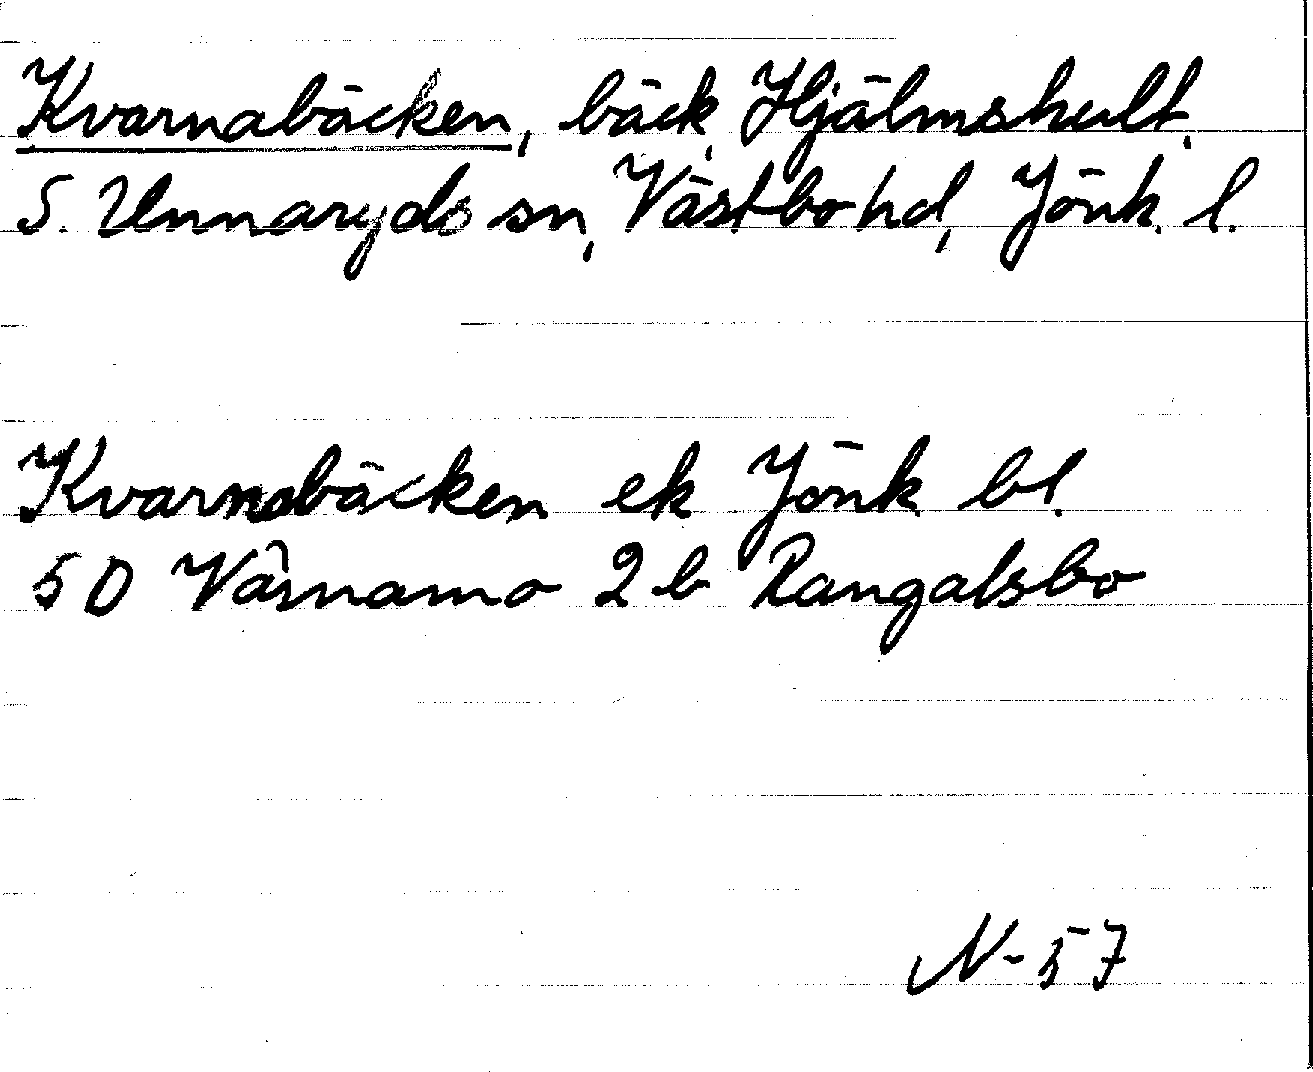 Kvarnabäcken, bäck, Hjälmshult,
S. Unnaryds sn, Västbo hd, Jönk. l.
Kvarnabäcken ek Jönk. bl.
5D Värnamo 2b Rangalsbo
N-57